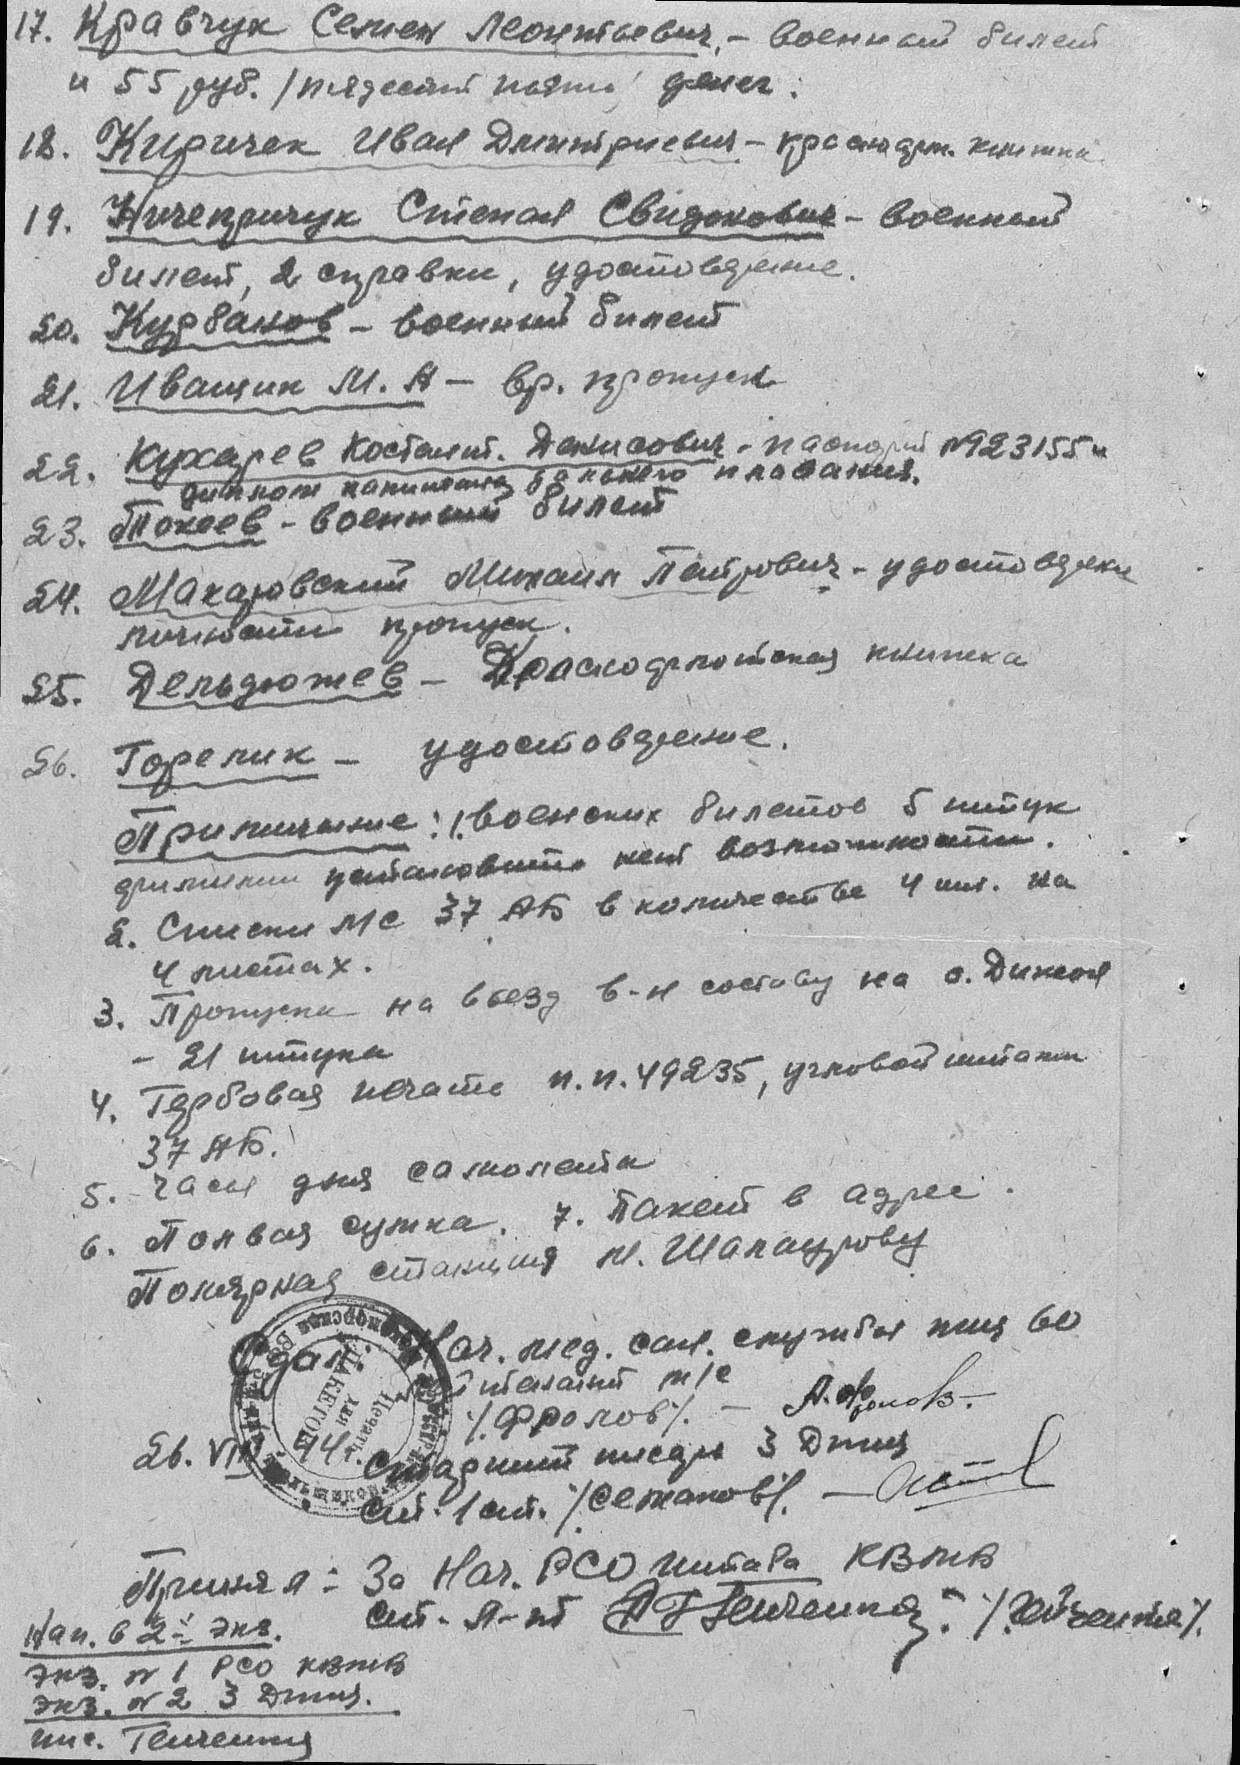 17. Кравчук Семен Леонтьевич, - военный билет
и 55 руб. /пядесят пять/ денег.
18. Киричек Иван Дмитриевич - красноарм. книжка
19. Ничепричук Степан - военный
билет, 2 справки, удостоверение.
20. Курбанов - военный билет
21. Иващик М. А - вр. пропуск
22. Кухарев Костант. Денисович - паспорт №923155 и
диплом капитана дальнего плавания.
23. Токеев - военный билет
24. Макаровский Михаил Петрович - удостоверен
личности пропуск.
25. Дельдюжев - Красноармейская книжка
26. Горелик - удостоверение.
Примичание: 1. военских билетов 5 штук
фимилии установить нет возможности.
2. Списки МС 37 АБ в количестве 4 шт. на
4 листах.
3. Пропуска на въезд в-н составу на о. Диксон
- 21 штука
4. Гербовая печать п.п. 49235, угловой штамп
37 АБ.
5. Часы для самолета
6. Полвая сумка. 7. Пакет в адрес.
Полярная станция м. Шалаурову
Сдал: Нач. мед. сан. службы тщ 60
лейтенант м/с
/. Фролов/. - А. Фролов.-
26. VIII 44г. Старший писарь 3 Дтщ
ст. 1 ст. /. Семанов/. -
Принял: За Нач. РСО штаба КВМБ
ст. л-нт
Нап. в 2-х экз.
Экз. № 1 РСО КВМБ
Экз. № 2 3 Дтщ.
пис. Генченка
Печать
для
ПАКЕТОВ